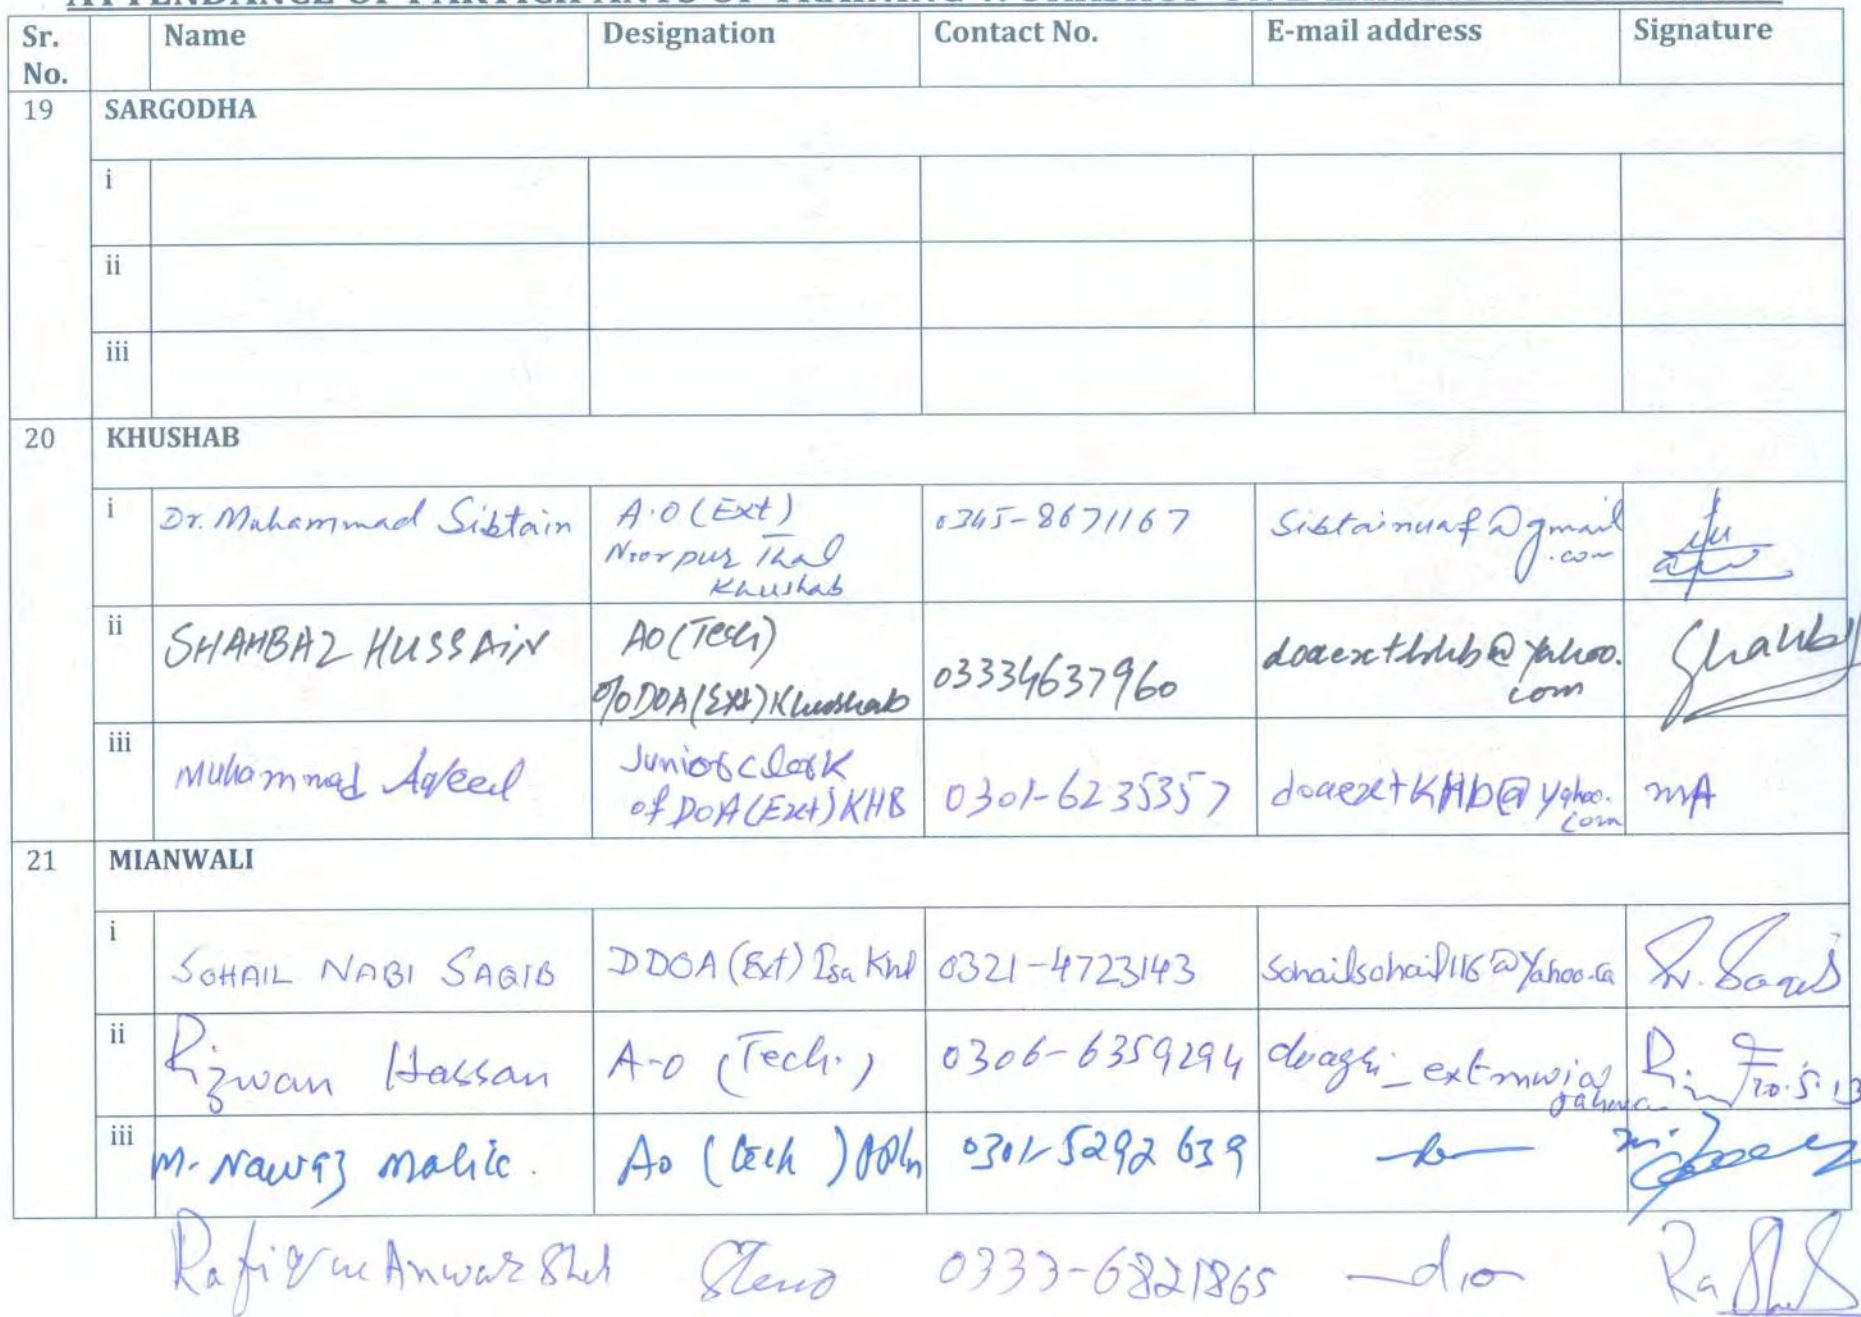 ATTENDANCE OF PARTICIPANTS OF TRAINING WORKSHOP ON
Sr. No. Name Designation Contact No. E-mail address Signature
19 SARGODHA
i
ii
iii
20 KHUSHAB
i Dr. Muhammad Sibtain A.O (Ext) Noorpur Thal Khushab 0345-8671167 Sibtainuaf@gmail.com
ii SHAHBAZ HUSSAIN AO (Tech) O/O DOA (Ext) Khushab 03334637960 doaextkhb@yahoo.com Shahbaz
iii Muhammad Aqeel Junior Clerk of DOA (Ext) KHB 0301-6235357 doaextKHb@yahoo.com MA
21 MIANWALI
i SOHAIL NABI SAQIB DDOA (Ext) Isa Khl 0321-4723143 Sohailsohail116@yahoo.ca Saqib
ii Rizwan Hassan A-O (Tech.) 0306-6359294 20.5.13
iii M. Nawaz Malik. Ao (tech) PPln 0301-5292639
Rafique Anwar Shah Steno 0333-6821865 -do